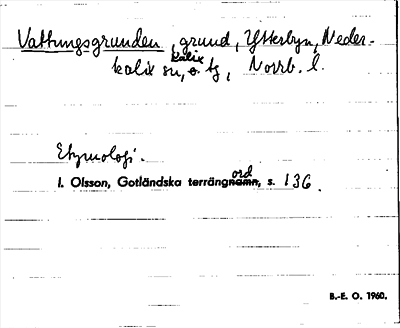 Vattungsgrunden, grund, Ytterbyn, Neder-
kalix sn, Kalix tg, Norrb. l.
Etymologi.
I. Olsson, Gotländska terrängord, s. 136.
B.-E. O. 1960.